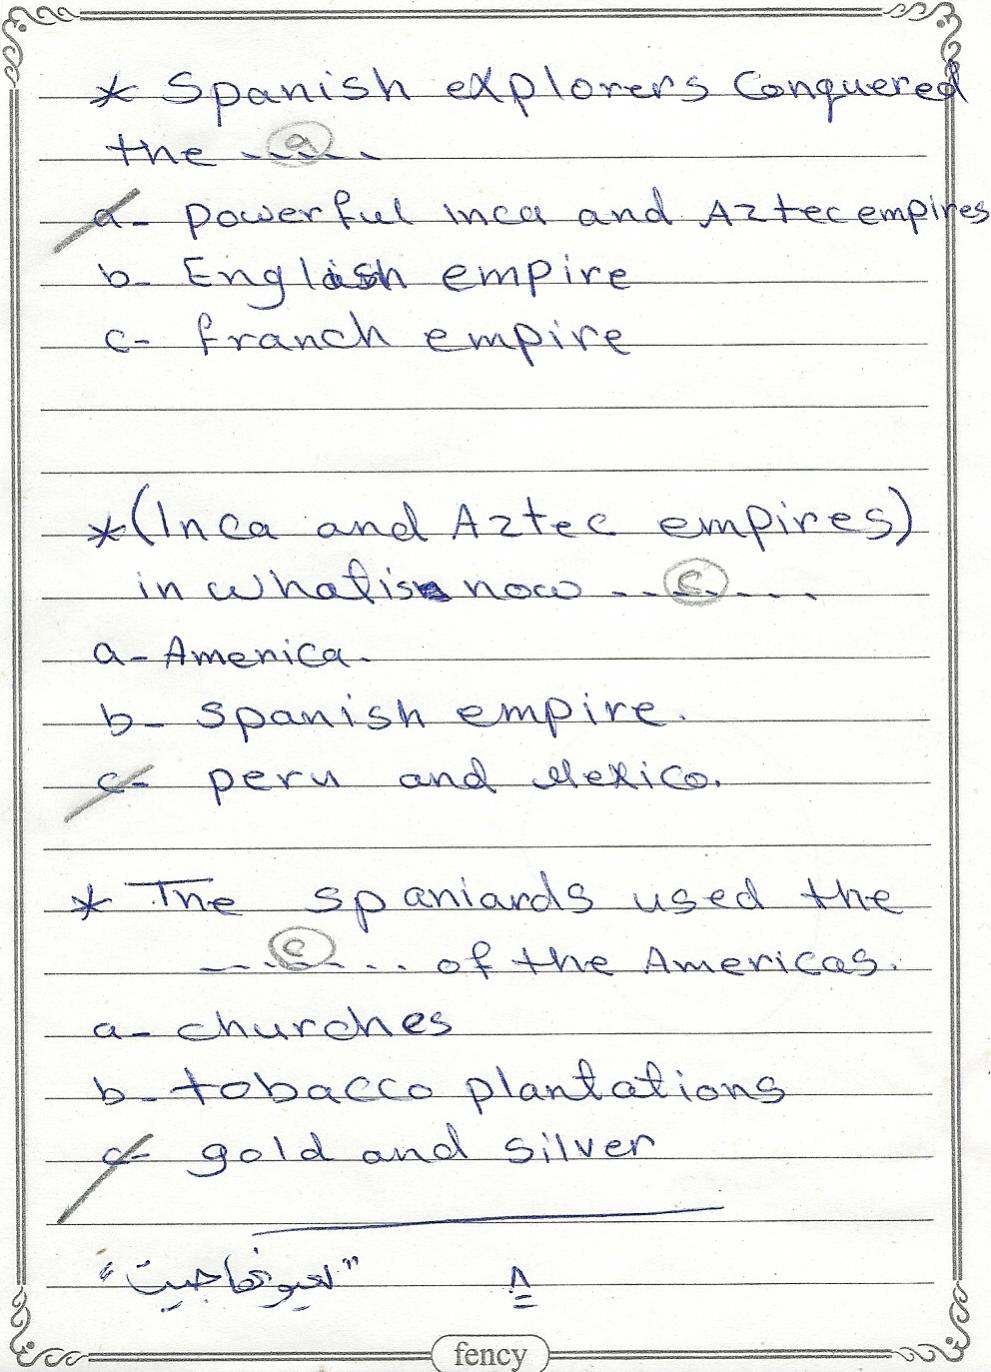 * Spanish explorers Conquered
the ---a---
a- powerful Inca and Aztec empires
b- English empire
c- franch empire
* (Inca and Aztec empires)
in what is now ---c---
a- America.
b- spanish empire.
c- peru and Mexico.
* The spaniards used the
---c--- of the Americas.
a- churches
b- tobacco plantations
c- gold and silver
٨
fency